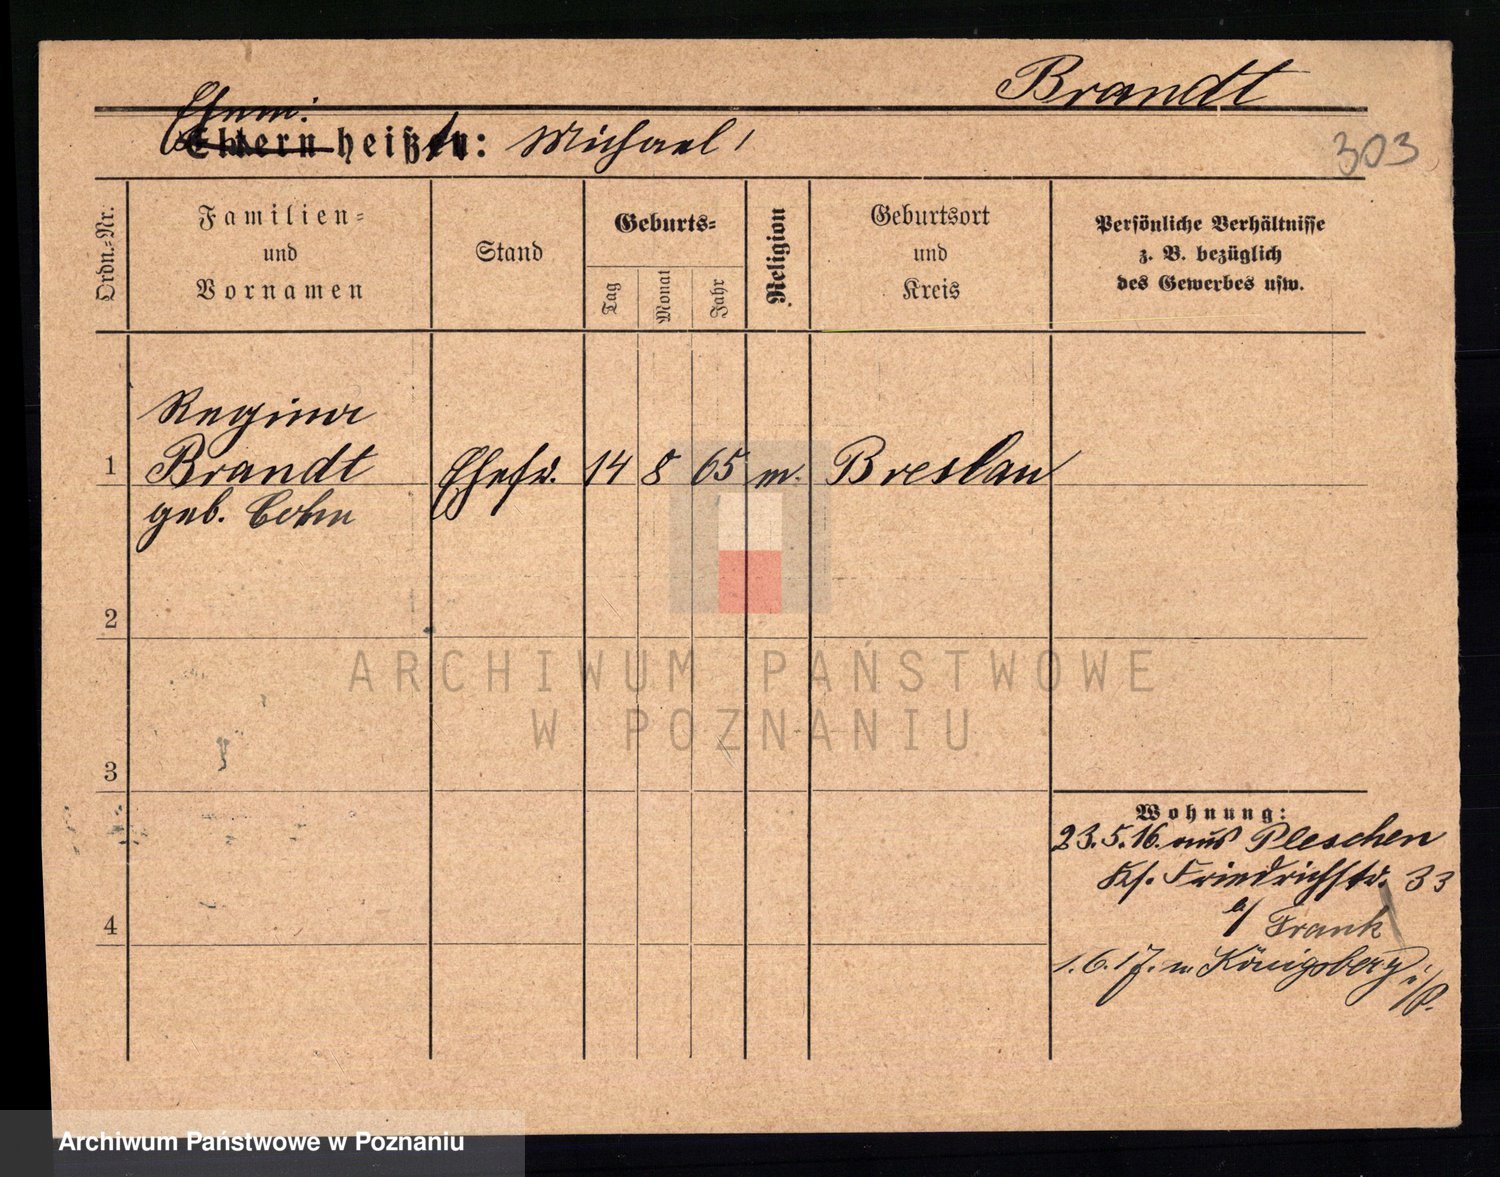 Brandt
Ehem:
Eltern heißt: Michael
303
Ordn.-Nr.
Familien-
und
Vornamen
Stand
Geburts-
Tag
Monat
Jahr
Religion
Geburtsort
und
Kreis
Persönliche Verhältnisse
z. B. bezüglich
des Gewerbes usw.
Regina
1 Brandt Ehefr. 14 8 65 m. Breslau
geb. Cohn
2
ARCHIWUM PAŃSTWOWE
W POZNANIU
3
Wohnung:
23.5.16. aus Pleschen
Ks. Friedrichstr. 33
b/ Frank
4
1.6.17. n. Königsberg i/P.
Archiwum Państwowe w Poznaniu